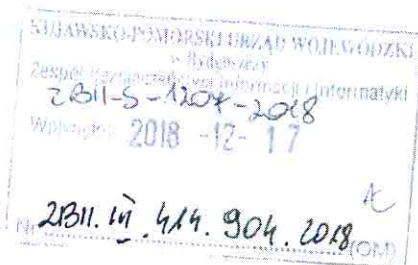 KUJAWSKO-POMORSKI URZĄD WOJEWÓDZKI
w Bydgoszczy
Zespół Informacji i Informatyki
ZBII-S-1207-2018
Wpłynęło 2018 -12- 17
Nr ZBII.III.414.904.2018 (OM)